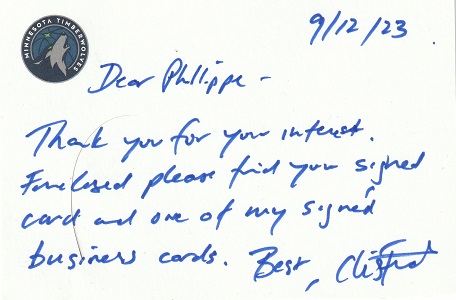 MINNESOTA TIMBERWOLVES
9/12/23
Dear Phillippe -
Thank you for your interest.
Enclosed please find your signed
card and one of my signed
business cards. Best,